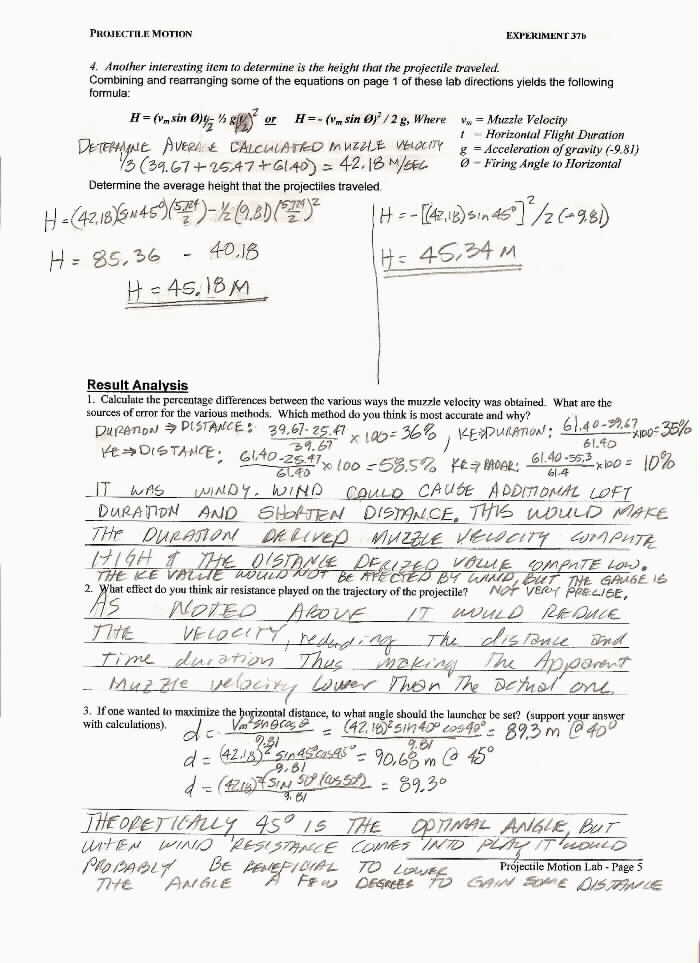 PROJECTILE MOTION EXPERIMENT 37b
4. Another interesting item to determine is the height that the projectile traveled.
Combining and rearranging some of the equations on page 1 of these lab directions yields the following
formula:
H = (vm sin Ø)t/2 - ½ g(t/2)² or H = - (vm sin Ø)² / 2 g, Where vm = Muzzle Velocity
t = Horizontal Flight Duration
g = Acceleration of gravity (-9.81)
Ø = Firing Angle to Horizontal
DETERMINE AVERAGE CALCULATED MUZZLE VELOCITY
1/3 (39.67 + 25.47 + 61.40) = 42.18 M/SEC
Determine the average height that the projectiles traveled.
H = (42.18)(SIN 45°)(5.724/2) - ½ (9.81)(5.724/2)²
H = 85.36 - 40.18
H = 45.18 M
H = -[(42.18) sin 45°]²/2 (-9.81)
H = 45.34 M
Result Analysis
1. Calculate the percentage differences between the various ways the muzzle velocity was obtained. What are the
sources of error for the various methods. Which method do you think is most accurate and why?
DURATION ⇒ DISTANCE: 39.67-25.47/39.67 × 100 = 36%, KE⇒DURATION: 61.40-39.67/61.40 ×100 = 35%
KE ⇒ DISTANCE: 61.40-25.47/61.40 × 100 = 58.5% KE⇒RADAR: 61.40-55.3/61.4 ×100 = 10%
IT WAS WINDY. WIND COULD CAUSE ADDITIONAL LOFT
DURATION AND SHORTEN DISTANCE. THIS WOULD MAKE
THE DURATION DERIVED MUZZLE VELOCITY COMPUTE
HIGH & THE DISTANCE DERIZED VALUE COMPUTE LOW.
THE KE VALUE WOULD NOT BE AFECTED BY WIND, BUT THE GAUGE IS
NOT VERY PRECISE.
2. What effect do you think air resistance played on the trajectory of the projectile?
AS NOTED ABOVE IT WOULD REDUCE
THE VELOCITY, reducing The distance and
Time duration Thus making The Apparent
Muzzle velocity Lower Than The actual one.
3. If one wanted to maximize the horizontal distance, to what angle should the launcher be set? (support your answer
with calculations).
d = Vm² sin θ cos θ/9.81 = (42.18)² sin 40° cos 40°/9.81 = 89.3 m @ 40°
d = (42.18)² sin 45° cos 45°/9.81 = 90.68 m @ 45°
d = (42.18)² sin 50° (cos 50°)/9.81 = 89.3°
THEORETICALLY 45° IS THE OPTIMAL ANGLE, BUT
WHEN WIND RESISTANCE COMES INTO PLAY IT WOULD
PROBABLY BE BENEFICIAL TO LOWER
Projectile Motion Lab - Page 5
THE ANGLE A FEW DEGREES TO GAIN SOME DISTANCE